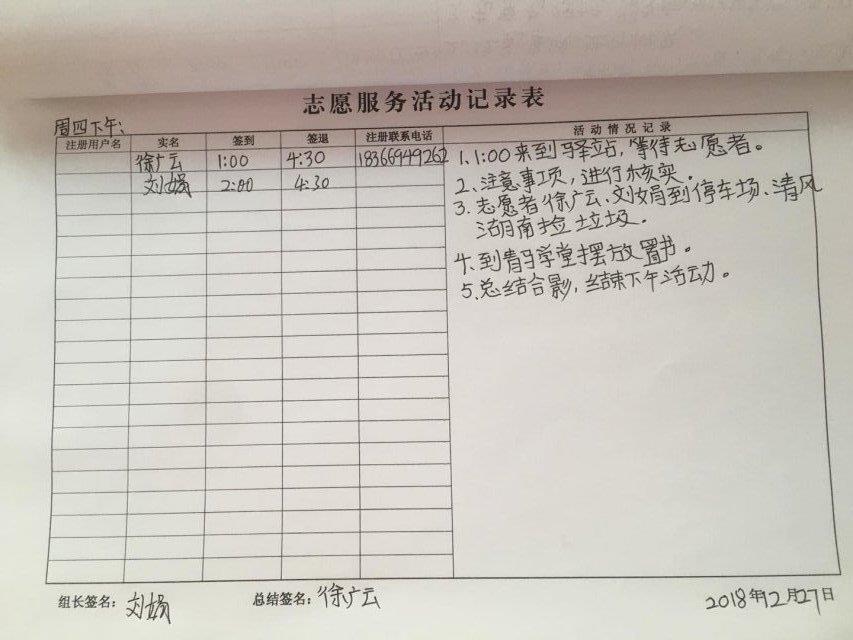 志愿服务活动记录表
周四下午:
注册用户名 实名 签到 签退 注册联系电话 活动情况记录
徐广云 1:00 4:30 18366949262
刘娟 2:00 4:30
1. 1:00来到驿站,等待志愿者。
2、注意事项,进行核实。
3. 志愿者徐广云、刘娟到停车场、清风
湖南捡垃圾。
4. 到青马学堂摆放图书。
5. 总结合影,结束下午活动。
组长签名: 刘娟 总结签名: 徐广云 2018年12月27日